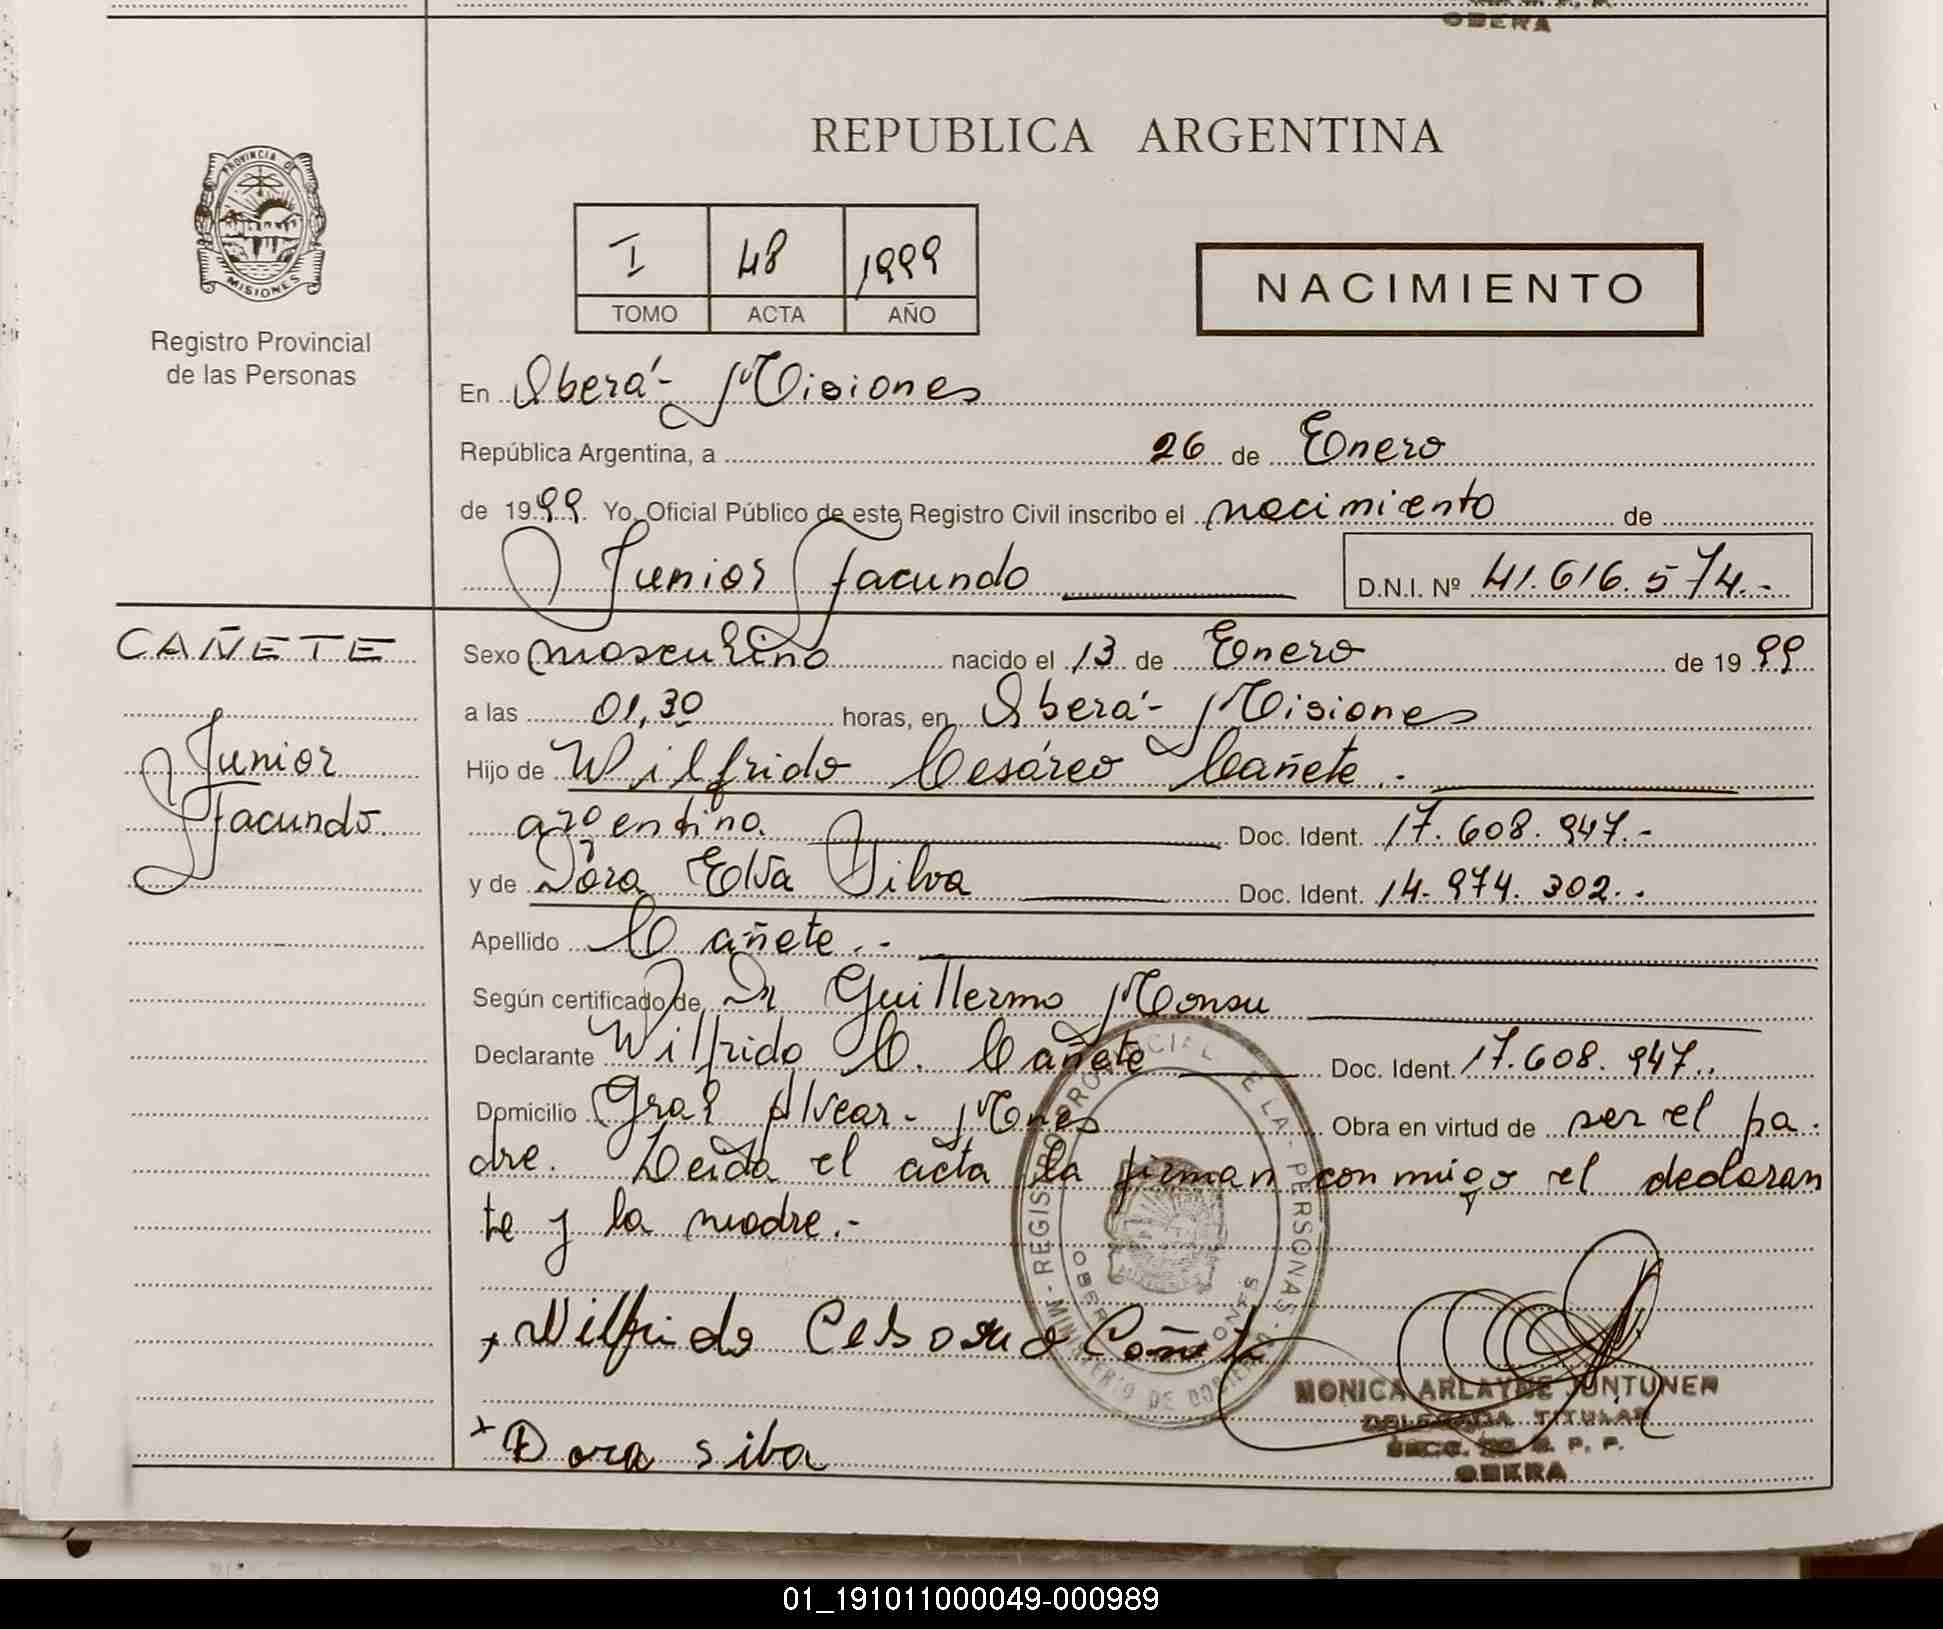 OBERA
PROVINCIA DE
MISIONES
Registro Provincial
de las Personas
REPUBLICA ARGENTINA
I 48 1999
TOMO ACTA AÑO
NACIMIENTO
En Oberá- Misiones
República Argentina, a 26 de Enero
de 1999. Yo, Oficial Público de este Registro Civil inscribo el nacimiento de
Junior Facundo D.N.I. Nº 41.616.574.-
CAÑETE
Junior
Facundo
Sexo masculino nacido el 13 de Enero de 1999
a las 01,30 horas, en Oberá- Misiones
Hijo de Wilfrido Cesáreo Cañete.
argentino. Doc. Ident. 17.608.947.-
y de Dora Elva Silva Doc. Ident. 14.974.302..
Apellido Cañete.-
Según certificado de Dr Guillermo Monsu
Declarante Wilfrido C. Cañete Doc. Ident. 17.608.947..
Domicilio Gral Alvear- Mnes Obra en virtud de ser el pa-
dre. Leida el acta la firman conmigo el declaran
te y la madre.-
Wilfrido Cañete
Dora silva
REGISTRO PROVINCIAL DE LA PERSONAS - MINISTERIO DE GOBIERNO
OBERA MISIONES
MONICA ARLAYNE JUNTUNEN
DELEGADA TITULAR
R. P. P.
OBERA
01_191011000049-000989